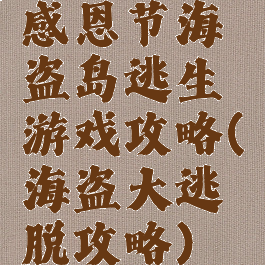 感恩节海
盗岛逃生
游戏攻略(
海盗大逃
脱攻略)